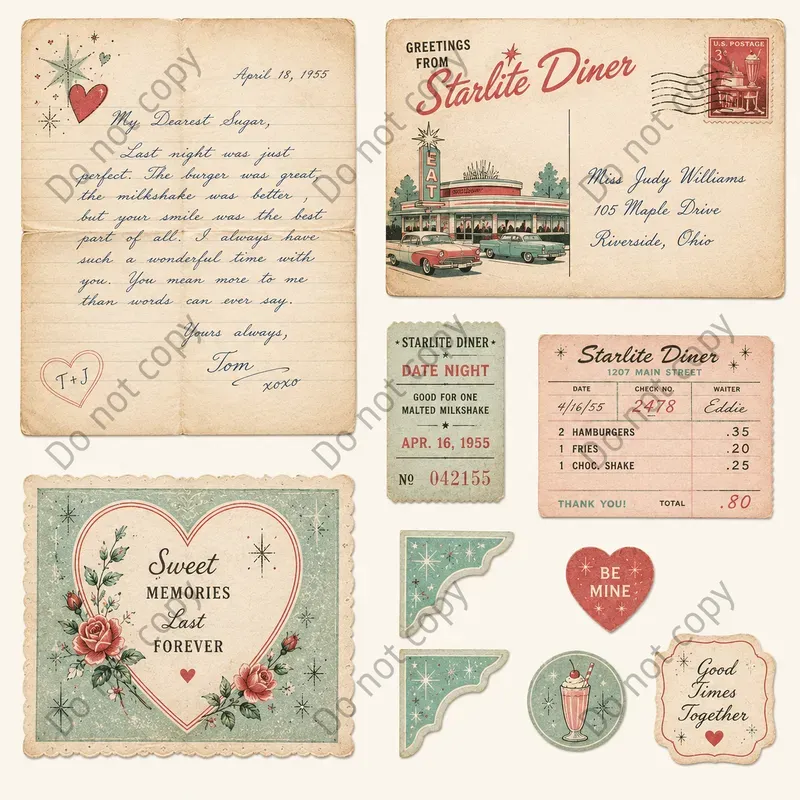 April 18, 1955
My Dearest Sugar,
Last night was just
perfect. The burger was great,
the milkshake was better ,
but your smile was the best
part of all. I always have
such a wonderful time with
you. You mean more to me
than words can ever say.
Yours always,
Tom
xoxo
T+J
GREETINGS
FROM
Starlite Diner
U.S. POSTAGE
3¢
EAT
Miss Judy Williams
105 Maple Drive
Riverside, Ohio
STARLITE DINER
DATE NIGHT
GOOD FOR ONE
MALTED MILKSHAKE
APR. 16, 1955
Nº 042155
Starlite Diner
1207 MAIN STREET
DATE CHECK NO. WAITER
4/16/55 2478 Eddie
2 HAMBURGERS .35
1 FRIES .20
1 CHOC. SHAKE .25
THANK YOU! TOTAL .80
Sweet
MEMORIES
Last
FOREVER
BE
MINE
Good
Times
Together
Do not copy
Do not copy
Do not copy
Do not copy
Do not copy
Do not copy
Do not copy
Do not copy
Do not copy